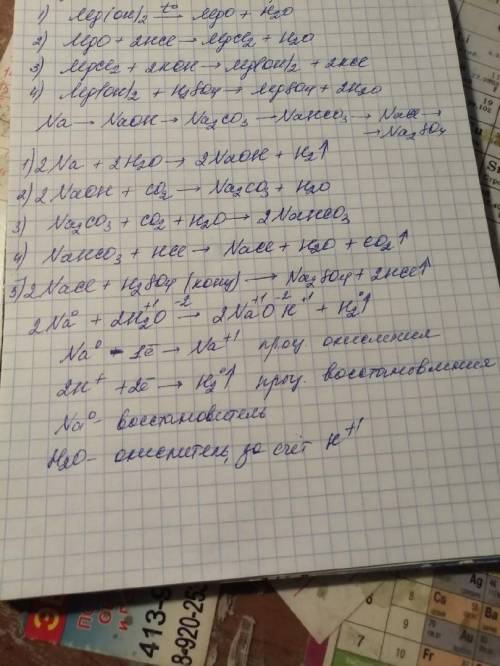 1) Mg(OH)2 t° → MgO + H2O
2) MgO + 2HCl → MgCl2 + H2O
3) MgCl2 + 2KOH → Mg(OH)2 + 2KCl
4) Mg(OH)2 + H2SO4 → MgSO4 + 2H2O
Na → NaOH → Na2CO3 → NaHCO3 → NaCl →
→ Na2SO4
1) 2Na + 2H2O → 2NaOH + H2↑
2) 2NaOH + CO2 → Na2CO3 + H2O
3) Na2CO3 + CO2 + H2O → 2NaHCO3
4) NaHCO3 + HCl → NaCl + H2O + CO2↑
5) 2NaCl + H2SO4 (конц) → Na2SO4 + 2HCl↑
2Na⁰ + 2H2⁺¹O⁻² → 2Na⁺¹O⁻²H⁺¹ + H2⁰↑
Na⁰ - 1ē → Na⁺¹ проц окисления
2H⁺ + 2ē → H2⁰↑ проц. восстановления
Na⁰ - восстановитель
H2O - окислитель, за счёт H⁺¹
413-9
8-920-25
Ag
Cu
Ba
Fr